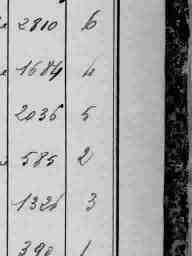 2810 6
1684 4
2036 5
585 2
1326 3
390 1